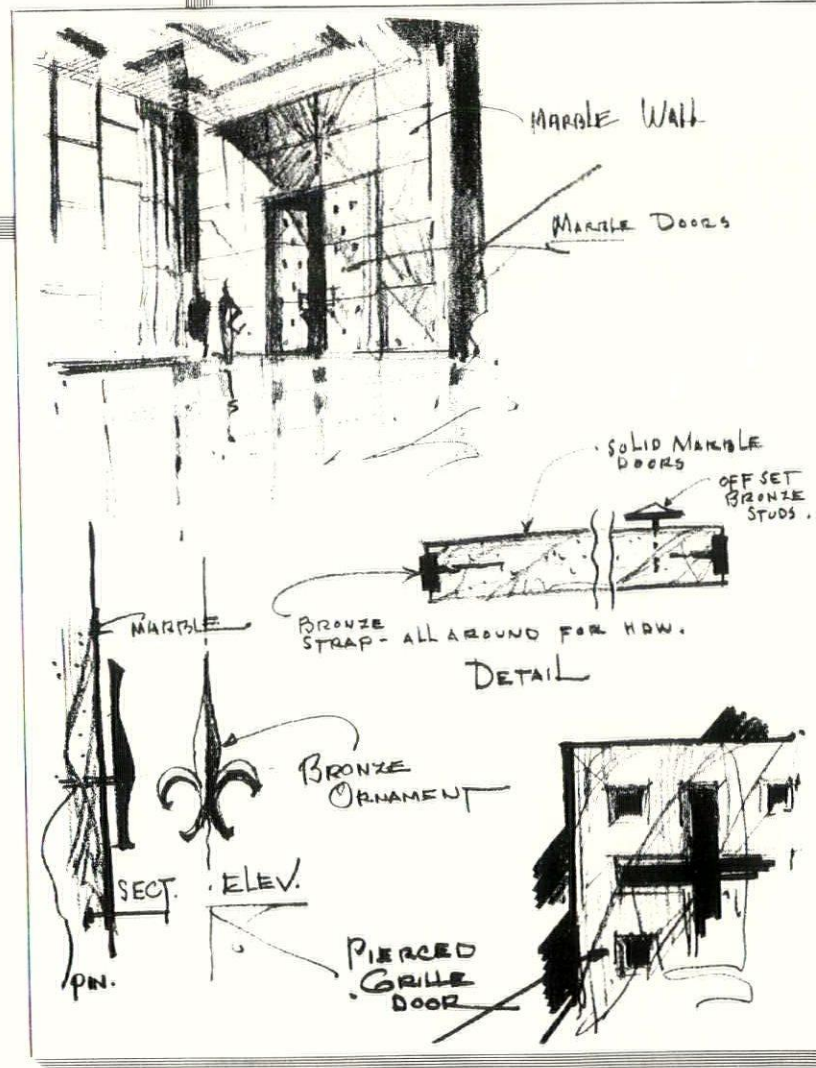 MARBLE WALL
MARBLE DOORS
SOLID MARBLE
DOORS
OFF SET
BRONZE
STUDS.
MARBLE
BRONZE
STRAP - ALL AROUND FOR HDW.
DETAIL
BRONZE
ORNAMENT
SECT.
ELEV.
PIN.
PIERCED
GRILLE
DOOR